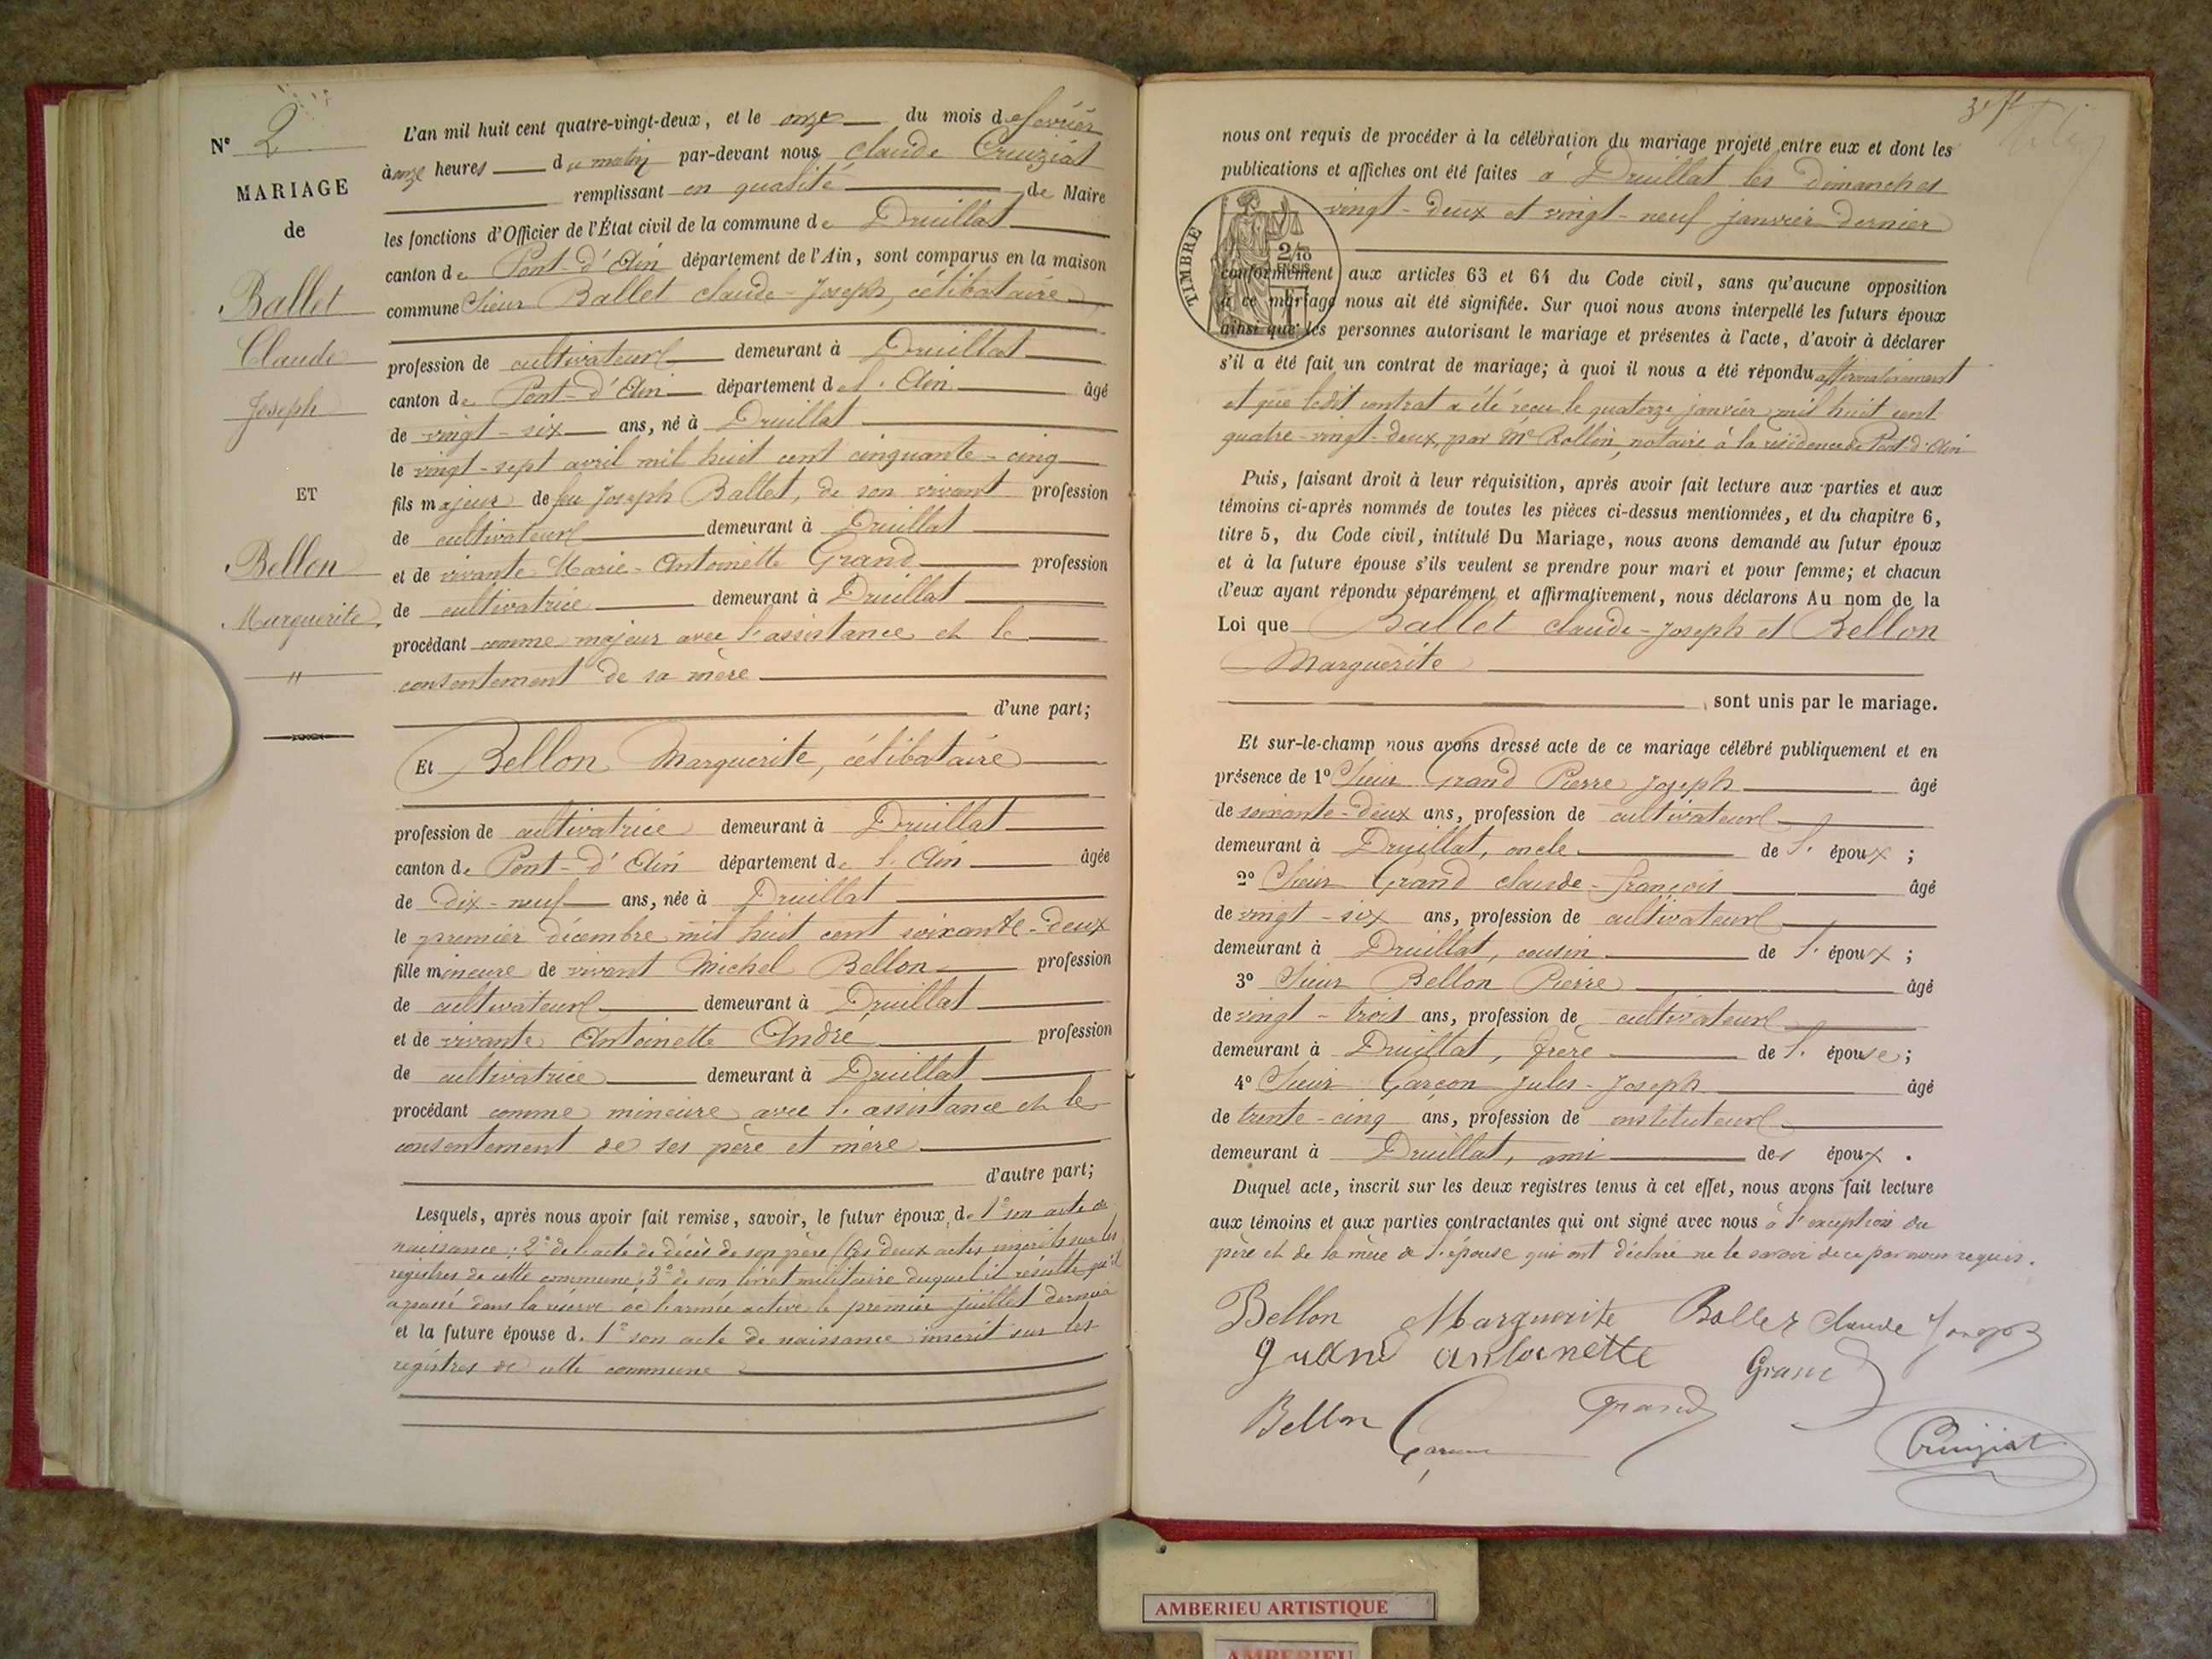 N° 2
MARIAGE
de
Ballet
Claude
Joseph
ET
Bellon
Marguerite
"
L'an mil huit cent quatre-vingt-deux, et le onze du mois de février
à onze heures du matin par-devant nous Claude Cruiziat
remplissant en qualité de Maire
les fonctions d'Officier de l'État civil de la commune de Druillat
canton de Pont-d'Ain département de l'Ain, sont comparus en la maison
commune Sieur Ballet Claude-Joseph, célibataire
profession de cultivateur demeurant à Druillat
canton de Pont-d'Ain département de l'Ain âgé
de vingt-six ans, né à Druillat
le vingt-sept avril mil huit cent cinquante-cinq
fils majeur de feu Joseph Ballet, de son vivant profession
de cultivateur demeurant à Druillat
et de vivante Marie-Antoinette Grand profession
de cultivatrice demeurant à Druillat
procédant comme majeur avec l'assistance et le
consentement de sa mère
d'une part;
Et Bellon Marguerite, célibataire
profession de cultivatrice demeurant à Druillat
canton de Pont-d'Ain département de l'Ain âgée
de dix-neuf ans, née à Druillat
le premier décembre mil huit cent soixante-deux
fille mineure de vivant Michel Bellon profession
de cultivateur demeurant à Druillat
et de vivante Antoinette André profession
de cultivatrice demeurant à Druillat
procédant comme mineure avec l'assistance et le
consentement de ses père et mère
d'autre part;
Lesquels, après nous avoir fait remise, savoir, le futur époux, de 1° son acte de
naissance; 2° de l'acte de décès de son père (les deux actes inscrits sur les
registres de cette commune; 3° de son livret militaire duquel il résulte qu'il
a passé dans la réserve de l'armée active le premier juillet dernier
et la future épouse d. 1° son acte de naissance inscrit sur les
registres de cette commune
nous ont requis de procéder à la célébration du mariage projeté entre eux et dont les
publications et affiches ont été faites à Druillat les dimanches
vingt-deux et vingt-neuf janvier dernier
TIMBRE
2/10
EN SUS
conformément aux articles 63 et 64 du Code civil, sans qu'aucune opposition
à ce mariage nous ait été signifiée. Sur quoi nous avons interpellé les futurs époux
ainsi que les personnes autorisant le mariage et présentes à l'acte, d'avoir à déclarer
s'il a été fait un contrat de mariage; à quoi il nous a été répondu affirmativement
et que ledit contrat a été reçu le quatorze janvier mil huit cent
quatre-vingt-deux, par Me Rollin, notaire à la résidence de Pont-d'Ain
Puis, faisant droit à leur réquisition, après avoir fait lecture aux parties et aux
témoins ci-après nommés de toutes les pièces ci-dessus mentionnées, et du chapitre 6,
titre 5, du Code civil, intitulé Du Mariage, nous avons demandé au futur époux
et à la future épouse s'ils veulent se prendre pour mari et pour femme; et chacun
d'eux ayant répondu séparément et affirmativement, nous déclarons Au nom de la
Loi que Ballet Claude-Joseph et Bellon
Marguerite
, sont unis par le mariage.
Et sur-le-champ nous avons dressé acte de ce mariage célébré publiquement et en
présence de 1° Sieur Grand Pierre Joseph âgé
de soixante-deux ans, profession de cultivateur
demeurant à Druillat, oncle de l'époux;
2° Sieur Grand Claude-François âgé
de vingt-six ans, profession de cultivateur
demeurant à Druillat, cousin de l'époux;
3° Sieur Bellon Pierre âgé
de vingt-trois ans, profession de cultivateur
demeurant à Druillat, frère de l'épouse;
4° Sieur Garçon Jules-Joseph âgé
de trente-cinq ans, profession de instituteur
demeurant à Druillat, ami des époux.
Duquel acte, inscrit sur les deux registres tenus à cet effet, nous avons fait lecture
aux témoins et aux parties contractantes qui ont signé avec nous à l'exception du
père et de la mère de l'épouse qui ont déclaré ne le savoir de ce par nous requis.
Bellon Marguerite Ballet Claude Joseph
Grand Antoinette Grand
Bellon Garçon Grand
Cruiziat
AMBERIEU ARTISTIQUE
AMBERIEU